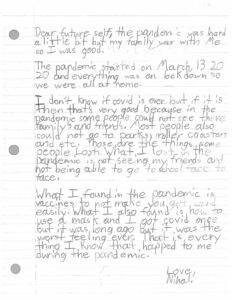 Dear future self, the pandemic was hard
a little bit but my family was with me
so I was good.
The pandemic started on March, 13 20
20 and everything was on lockdown so
we were all at home.
I don't know if covid is over but if it is
then that's very good because in the
pandemic some people could not see there
family's and friends. Most people also
could not go to parks, roller coasters
and etc. Those are the things some
people lost. What I lost is the
pandemic is not seeing my friends and
not being able to go to school face to
face.
What I found in the pandemic is
vaccines to not make you get covid
easily. What I also found is how to
use a mask and I got covid once
but it was long ago but it was the
worst feeling ever. That is every
thing I know that happed to me
during the pandemic!
Love,
Nihal